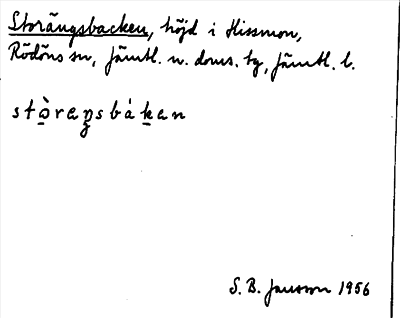 Storängsbacken, höjd i Hissmon,
Rödöns sn, Jämtl. n. doms. tg, Jämtl. l.
stò̠raŋsbákan
S. B. Jansson 1956